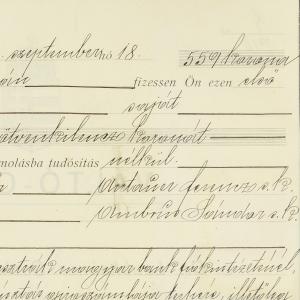 szeptember hó 18. 559 korona
fizessen Ön ezen első
saját
ötvenkilencz koronát
számolásba tudósítás nélkül.
Antauer Ferencz s.k.
Ambrus Sándor s.k.
magyar bank fiókintézeténél,
terhére, illetőleg